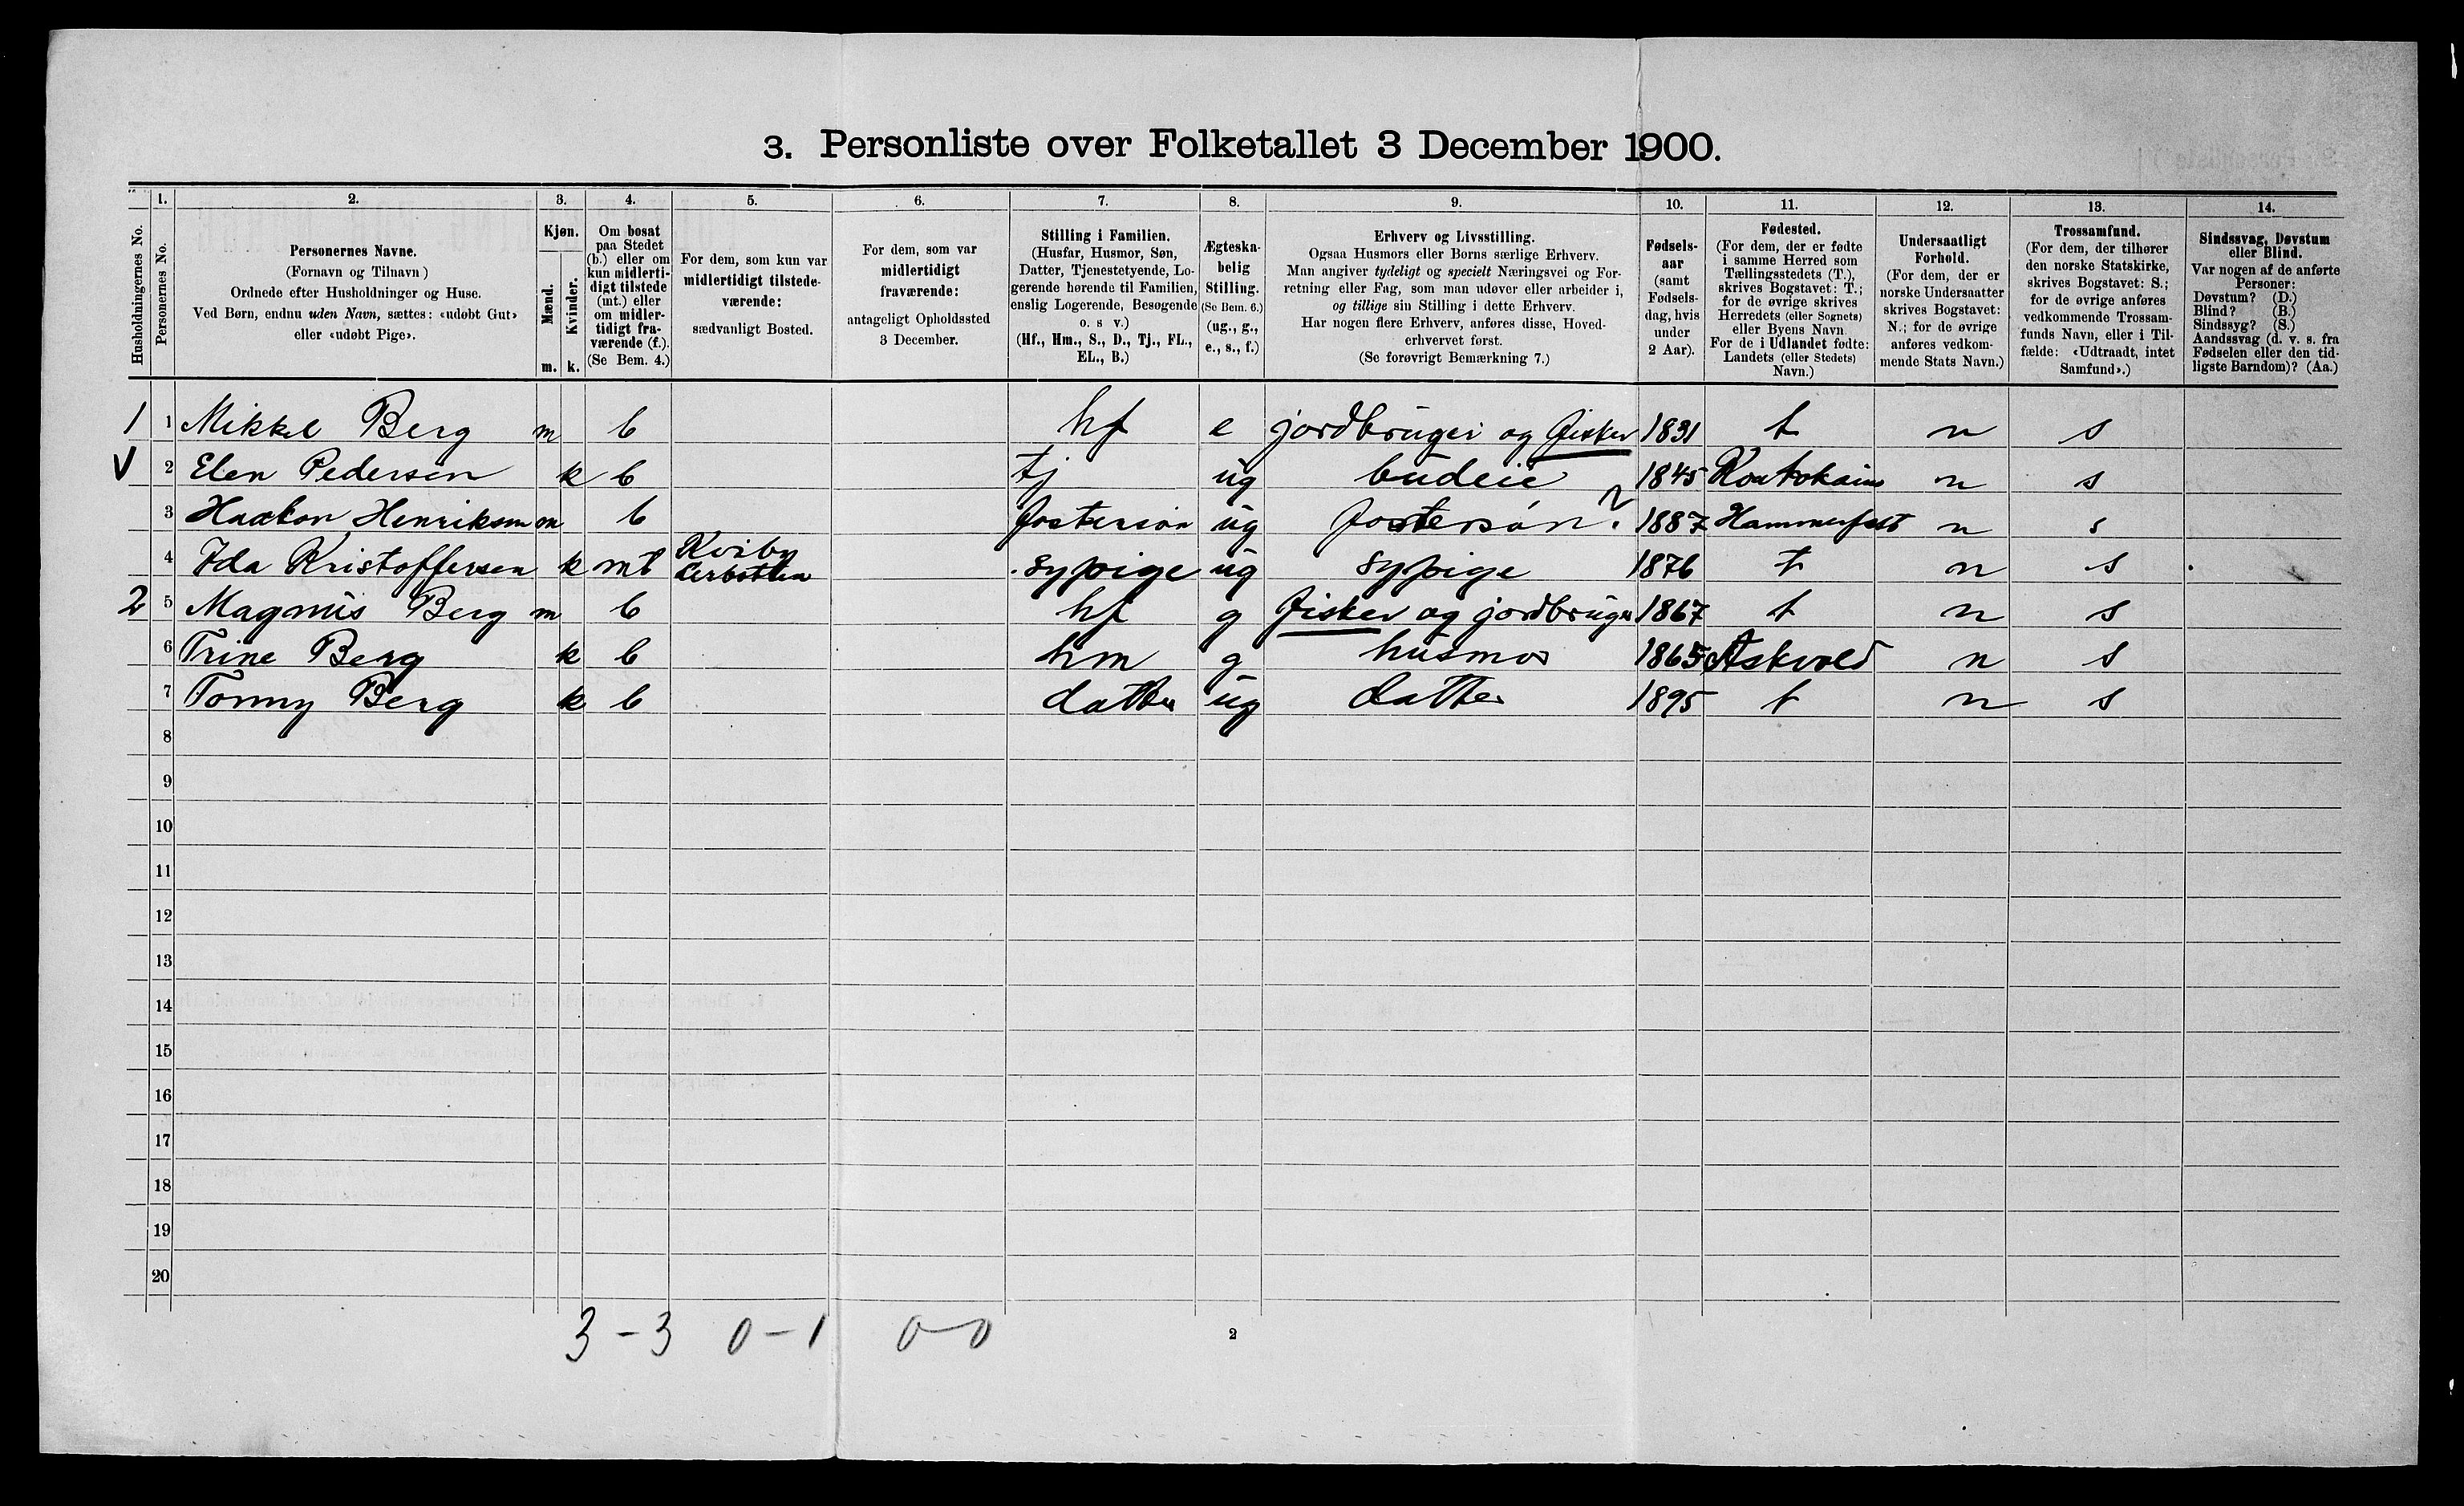 3. Personliste over Folketallet 3 December 1900.
1. 2. 3. 4. 5. 6. 7. 8. 9. 10. 11. 12. 13. 14.
Husholdningernes No.
Personernes No.
Personernes Navne.
(Fornavn og Tilnavn)
Ordnede efter Husholdninger og Huse.
Ved Børn, endnu uden Navn, sættes: «udøbt Gut»
eller «udøbt Pige».
Kjøn.
Mænd.
Kvinder.
m. k.
Om bosat
paa Stedet
(b.) eller om
kun midlerti-
digt tilstede
(mt.) eller
om midler-
tidigt fra-
værende (f.).
(Se Bem. 4.)
For dem, som kun var
midlertidigt tilstede-
værende:
sædvanligt Bosted.
For dem, som var
midlertidigt
fraværende:
antageligt Opholdssted
3 December.
Stilling i Familien.
(Husfar, Husmor, Søn,
Datter, Tjenestetyende, Lo-
gerende hørende til Familien,
enslig Logerende, Besøgende
o. s v.)
(Hf., Hm., S., D., Tj., FL.,
EL., B.)
Ægteska-
belig
Stilling.
(Se Bem. 6.)
(ug., g.,
e., s., f.)
Erhverv og Livsstilling.
Ogsaa Husmors eller Børns særlige Erhverv.
Man angiver tydeligt og specielt Næringsvei og For-
retning eller Fag, som man udøver eller arbeider i,
og tillige sin Stilling i dette Erhverv.
Har nogen flere Erhverv, anføres disse, Hoved-
erhvervet først.
(Se forøvrigt Bemærkning 7.)
Fødsels-
aar
(samt
Fødsels-
dag, hvis
under
2 Aar).
Fødested.
(For dem, der er fødte
i samme Herred som
Tællingsstedets (T.),
skrives Bogstavet: T.;
for de øvrige skrives
Herredets (eller Sognets)
eller Byens Navn.
For de i Udlandet fødte:
Landets (eller Stedets)
Navn.)
Undersaatligt
Forhold.
(For dem, der er
norske Undersaatter
skrives Bogstavet:
N.; for de øvrige
anføres vedkom-
mende Stats Navn.)
Trossamfund.
(For dem, der tilhører
den norske Statskirke,
skrives Bogstavet: S.;
for de øvrige anføres
vedkommende Trossam-
funds Navn, eller i Til-
fælde: «Udtraadt, intet
Samfund».)
Sindssvag, Døvstum
eller Blind.
Var nogen af de anførte
Personer:
Døvstum? (D.)
Blind? (B.)
Sindssyg? (S.)
Aandssvag (d. v. s. fra
Fødselen eller den tid-
ligste Barndom)? (Aa.)
1 1 Mikkel Berg m b hf e jordbruger og fisker 1831 t n s
V 2 Elen Pedersen k b tj ug budeie 1845 Koutokaino n s
3 Haakon Henriksen m b fostersön ug fostersön ? 1887 Hammerfest n s
4 Ida Kristoffersen k mt Kviby Lerbotten sypige ug sypige 1876 t n s
2 5 Magnus Berg m b hf g fisker og jordbruger 1867 t n s
6 Trine Berg k b hm g husmor 1865 Askvold n s
7 Tonny Berg k b datter ug datter 1895 t n s
8
9
10
11
12
13
14
15
16
17
18
19
20
3 - 3 0 - 1 0-0
2